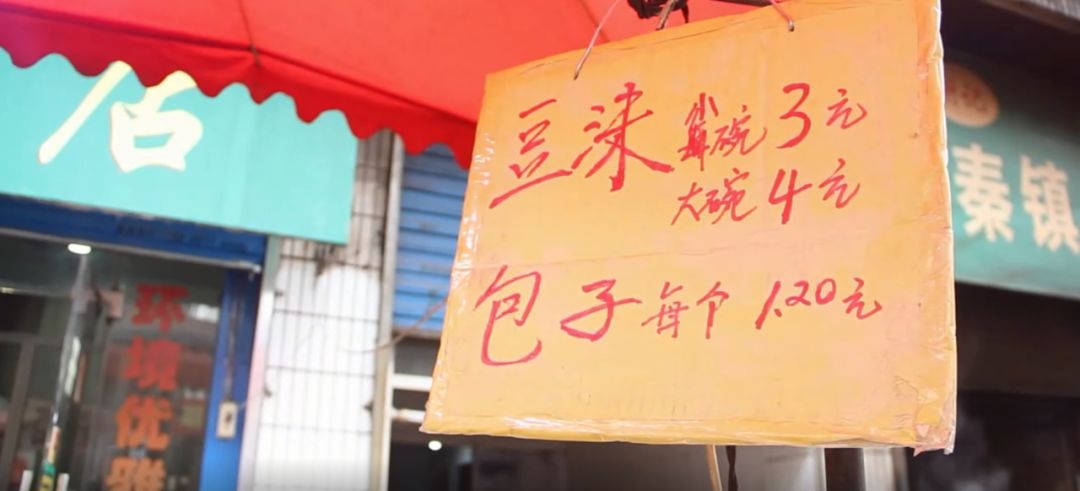 居
豆沫 小碗 3元
大碗 4元
包子 每个 1.20元
秦镇
环境优雅